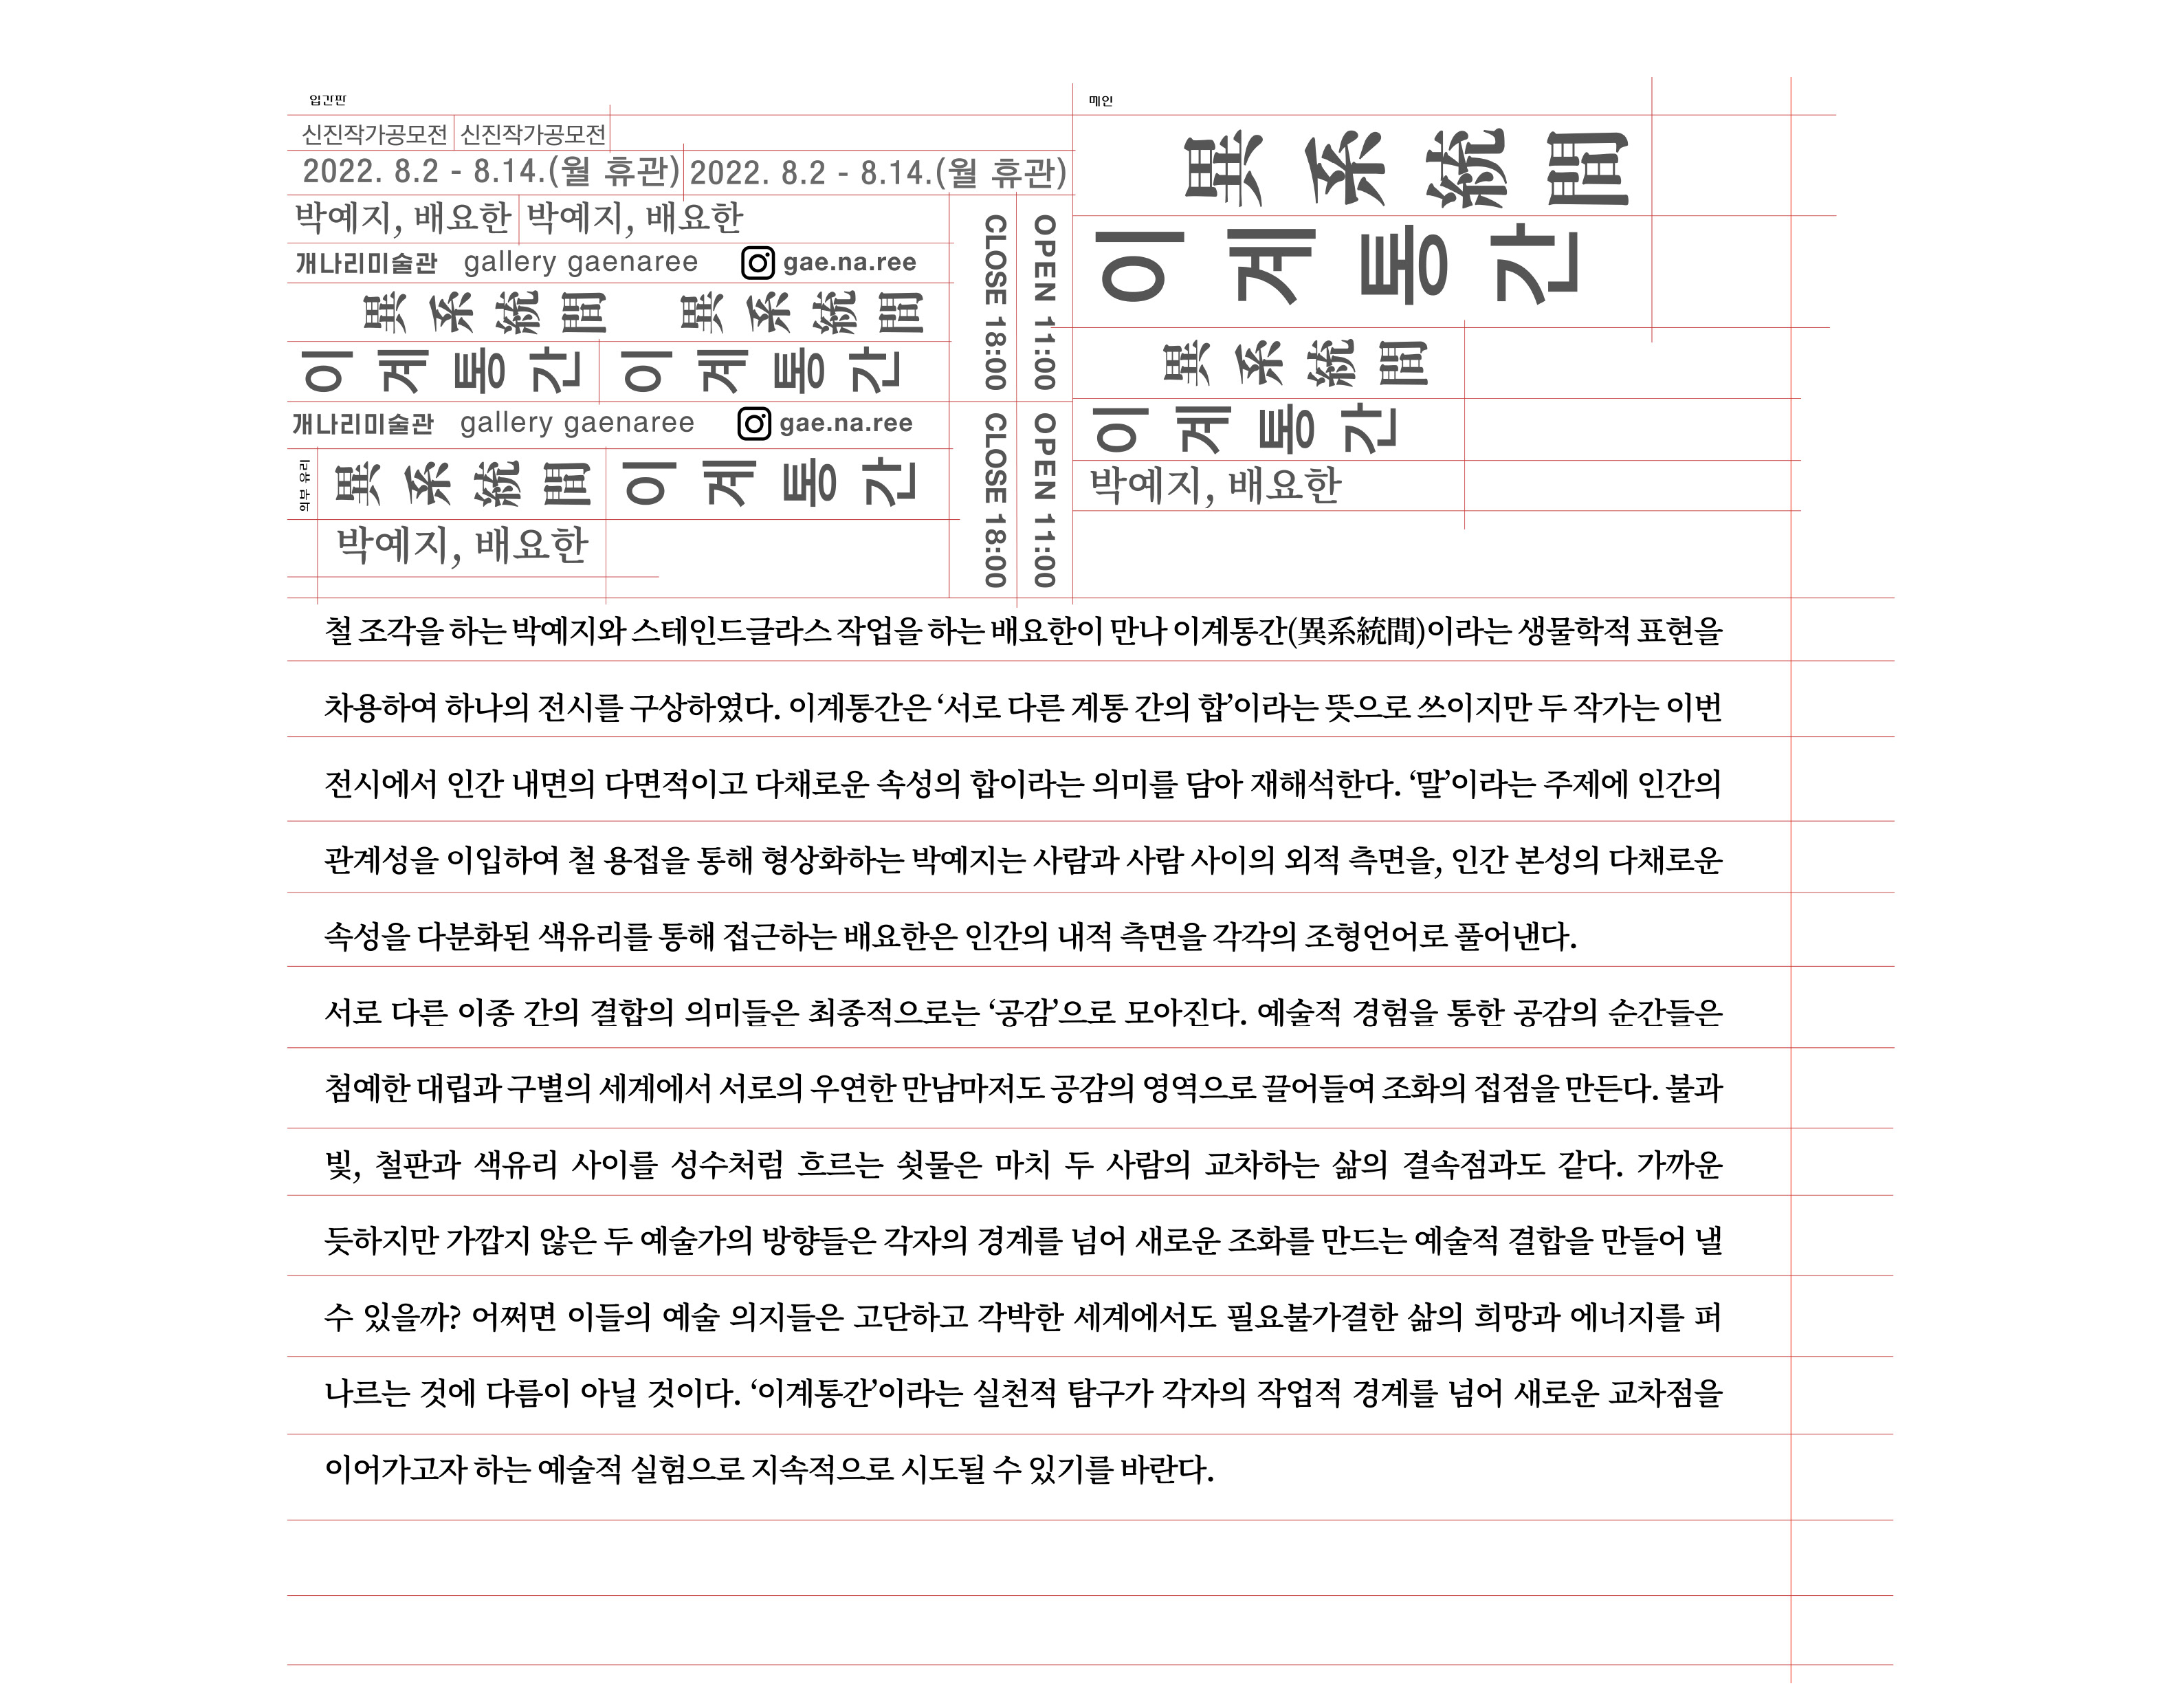 입간판
신진작가공모전 신진작가공모전
2022. 8.2 - 8.14.(월 휴관) 2022. 8.2 - 8.14.(월 휴관)
박예지, 배요한 박예지, 배요한
개나리미술관 gallery gaenaree gae.na.ree
異系統間 異系統間
이계통간 이계통간
개나리미술관 gallery gaenaree gae.na.ree
외부 유리
異系統間 이계통간
박예지, 배요한
OPEN 11:00
CLOSE 18:00
OPEN 11:00
CLOSE 18:00
메인
異系統間
이계통간
異系統間
이계통간
박예지, 배요한
철 조각을 하는 박예지와 스테인드글라스 작업을 하는 배요한이 만나 이계통간(異系統間)이라는 생물학적 표현을
차용하여 하나의 전시를 구상하였다. 이계통간은 ‘서로 다른 계통 간의 합’이라는 뜻으로 쓰이지만 두 작가는 이번
전시에서 인간 내면의 다면적이고 다채로운 속성의 합이라는 의미를 담아 재해석한다. ‘말’이라는 주제에 인간의
관계성을 이입하여 철 용접을 통해 형상화하는 박예지는 사람과 사람 사이의 외적 측면을, 인간 본성의 다채로운
속성을 다분화된 색유리를 통해 접근하는 배요한은 인간의 내적 측면을 각각의 조형언어로 풀어낸다.
서로 다른 이종 간의 결합의 의미들은 최종적으로는 ‘공감’으로 모아진다. 예술적 경험을 통한 공감의 순간들은
첨예한 대립과 구별의 세계에서 서로의 우연한 만남마저도 공감의 영역으로 끌어들여 조화의 접점을 만든다. 불과
빛, 철판과 색유리 사이를 성수처럼 흐르는 쇳물은 마치 두 사람의 교차하는 삶의 결속점과도 같다. 가까운
듯하지만 가깝지 않은 두 예술가의 방향들은 각자의 경계를 넘어 새로운 조화를 만드는 예술적 결합을 만들어 낼
수 있을까? 어쩌면 이들의 예술 의지들은 고단하고 각박한 세계에서도 필요불가결한 삶의 희망과 에너지를 퍼
나르는 것에 다름이 아닐 것이다. ‘이계통간’이라는 실천적 탐구가 각자의 작업적 경계를 넘어 새로운 교차점을
이어가고자 하는 예술적 실험으로 지속적으로 시도될 수 있기를 바란다.